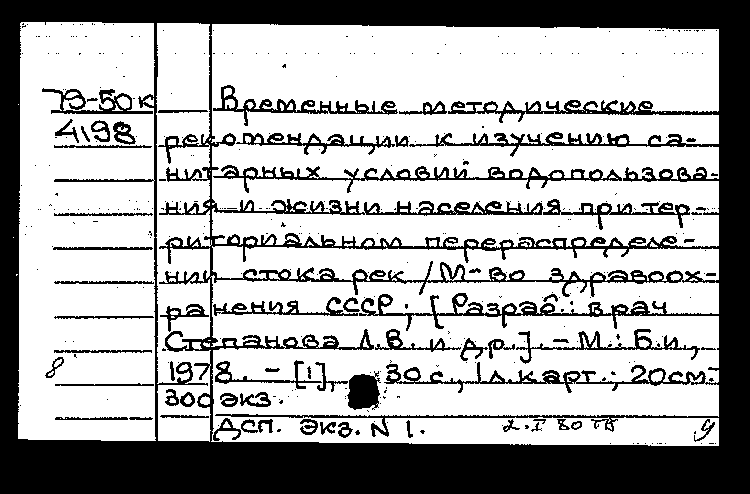 79-50к Временные методические
4198 рекомендации к изучению са-
нитарных условий водопользова-
ния и жизни населения при тер-
риториальном перераспределе-
нии стока рек / М-во здравоох-
ранения СССР; [Разраб.: врач
Степанова Л.В. и др.]. - М.: Б.и.,
8 1978. - [1], 30 с., 1 л. карт.; 20 см.-
300 экз.
ДСП. Экз. N 1. 2.I 80